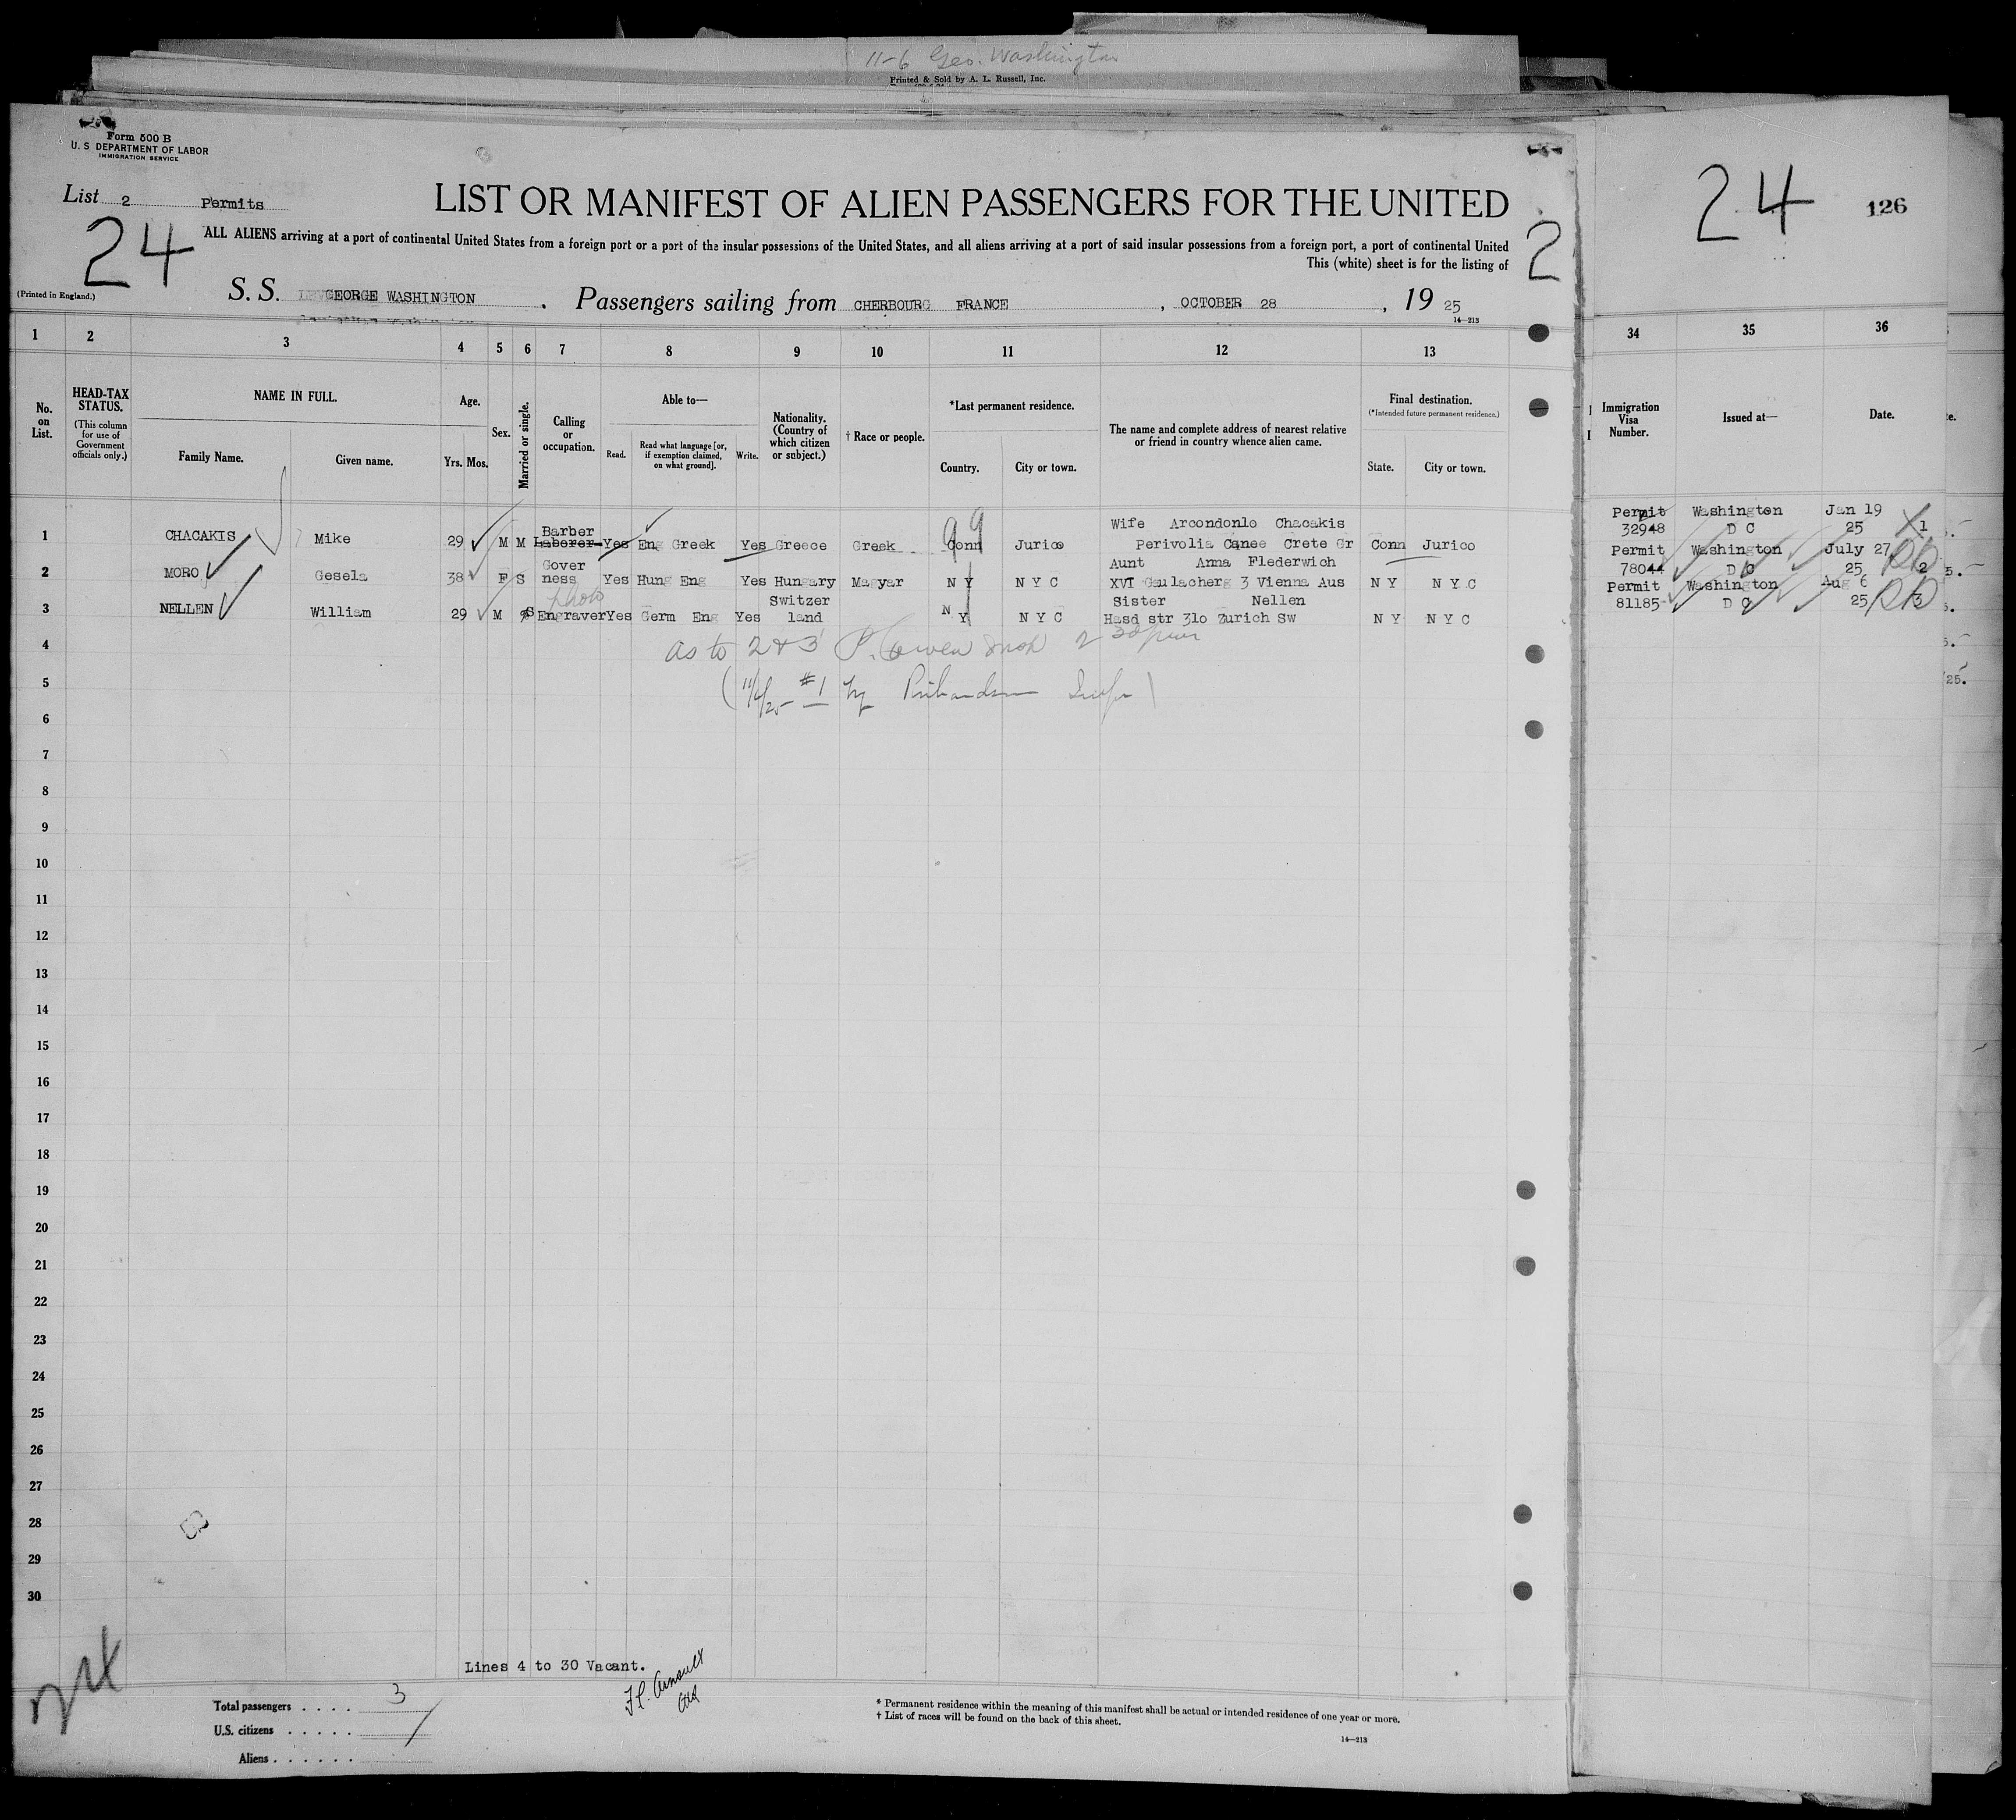 11-6 Geo. Washington
Printed & Sold by A. L. Russell, Inc.
Form 500 B
U. S DEPARTMENT OF LABOR
IMMIGRATION SERVICE
List 2 Permits
24
LIST OR MANIFEST OF ALIEN PASSENGERS FOR THE UNITED
ALL ALIENS arriving at a port of continental United States from a foreign port or a port of the insular possessions of the United States, and all aliens arriving at a port of said insular possessions from a foreign port, a port of continental United
This (white) sheet is for the listing of
2
24 126
(Printed in England.)
S. S. GEORGE WASHINGTON . Passengers sailing from CHERBOURG FRANCE , OCTOBER 28 , 19 25
14—213
1 2 3 4 5 6 7 8 9 10 11 12 13 34 35 36
No. on List.
HEAD-TAX STATUS.
(This column for use of Government officials only.)
NAME IN FULL.
Family Name. Given name.
Age.
Yrs. Mos.
Sex.
Married or single.
Calling or occupation.
Able to—
Read. Read what language [or, if exemption claimed, on what ground]. Write.
Nationality. (Country of which citizen or subject.)
† Race or people.
*Last permanent residence.
Country. City or town.
The name and complete address of nearest relative or friend in country whence alien came.
Final destination.
(*Intended future permanent residence.)
State. City or town.
Immigration Visa Number.
Issued at—
Date.
Barber Wife Arcondonlo Chacakis Permit Washington Jan 19
1 CHACAKIS Mike 29 M M Laborer Yes Eng Greek Yes Greece Greek Conn Jurico Perivolia Canee Crete Gr Conn Jurico 32948 D C 25 1
Gover Aunt Anna Flederwich Permit Washington July 27
2 MORO Gesela 38 F S ness Yes Hung Eng Yes Hungary Magyar N Y N Y C XVI Gaulacherg 3 Vienna Aus N Y N Y C 78044 D C 25 2
photo Switzer Sister Nellen Permit Washington Aug 6
3 NELLEN William 29 M S Engraver Yes Germ Eng Yes land N Y N Y C Hasd str 31o Zurich Sw N Y N Y C 81185 D C 25 3
4 as to 2 & 3
5 #1 by Richardson
6
7
8
9
10
11
12
13
14
15
16
17
18
19
20
21
22
23
24
25
26
27
28
29
30
Lines 4 to 30 Vacant.
Total passengers . . . . 3
U.S. citizens . . . . .
Aliens . . . . . .
* Permanent residence within the meaning of this manifest shall be actual or intended residence of one year or more.
† List of races will be found on the back of this sheet.
14—213